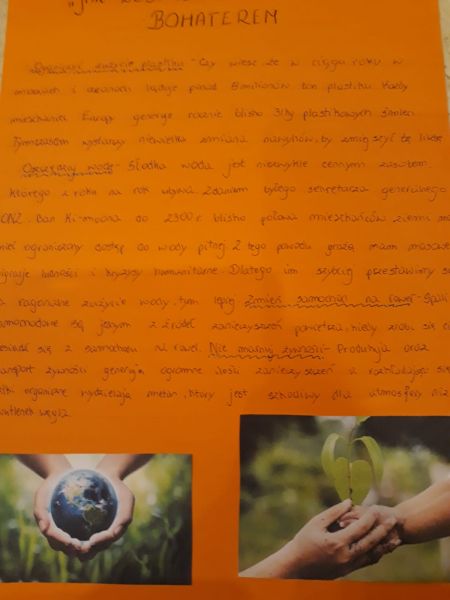 BOHATEREM
Ogranicz zużycie plastiku - Czy wiesz, że w ciągu roku w
morzach i oceanach ląduje ponad 8 milionów ton plastiku. Każdy
mieszkaniec Europy generuje rocznie blisko 31kg plastikowych śmieci.
Tymczasem wystarczy niewielka zmiana nawyków, by zmniejszyć tę liczbę.
Oszczędzaj wodę - Słodka woda jest niezwykle cennym zasobem,
którego z roku na rok ubywa. Zdaniem byłego sekretarza generalnego
ONZ Ban Ki-moona do 2300r. blisko połowa mieszkańców ziemi
ograniczony dostęp do wody pitnej. Z tego powodu grożą nam masowe
migracje ludności i kryzysy humanitarne. Dlatego im szybciej przestawimy
racjonalne zużycie wody, tym lepiej. Zmień samochód na rower -
samochodowe są jednym z źródeł zanieczyszczeń powietrza,
się z samochodu na rower. Nie marnuj żywności - Produkcja oraz
transport żywności generują ogromne ilości zanieczyszczeń, a rozkładając się
organiczne wydzielają metan, który jest szkodliwy dla atmosfery niż
węgla.